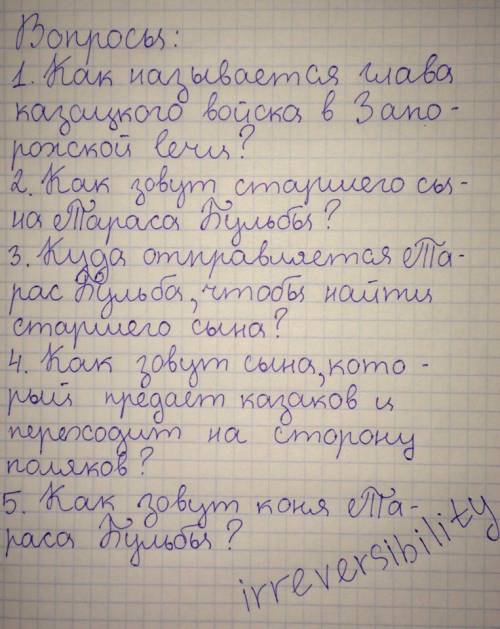 Вопросы:
1. Как называется глава
казацкого войска в Запо-
рожской вечи?
2. Как зовут старшего сы-
на Тараса Бульбы?
3. Куда отправляется Та-
рас Бульба, чтобы найти
старшего сына?
4. Как зовут сына, кото-
рый предаёт казаков и
переходит на сторону
поляков?
5. Как зовут коня Та-
раса Бульбы?
irreversibility